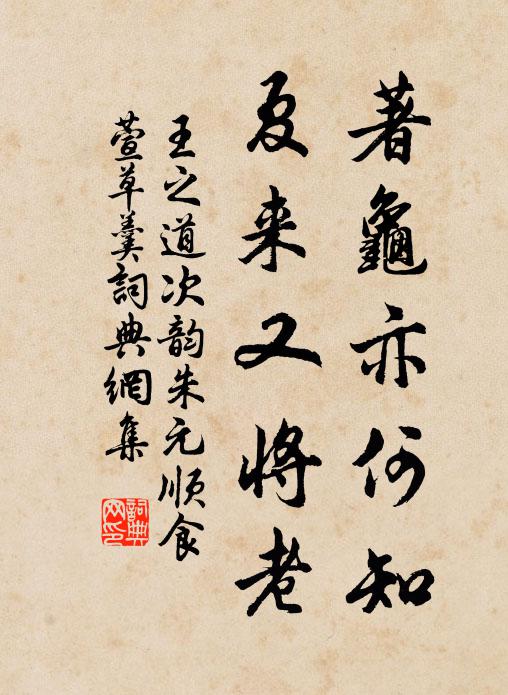 著龜亦何知
夏来又将老
王之道次韵朱元順食
萱草羹詞典網集
詞典网印